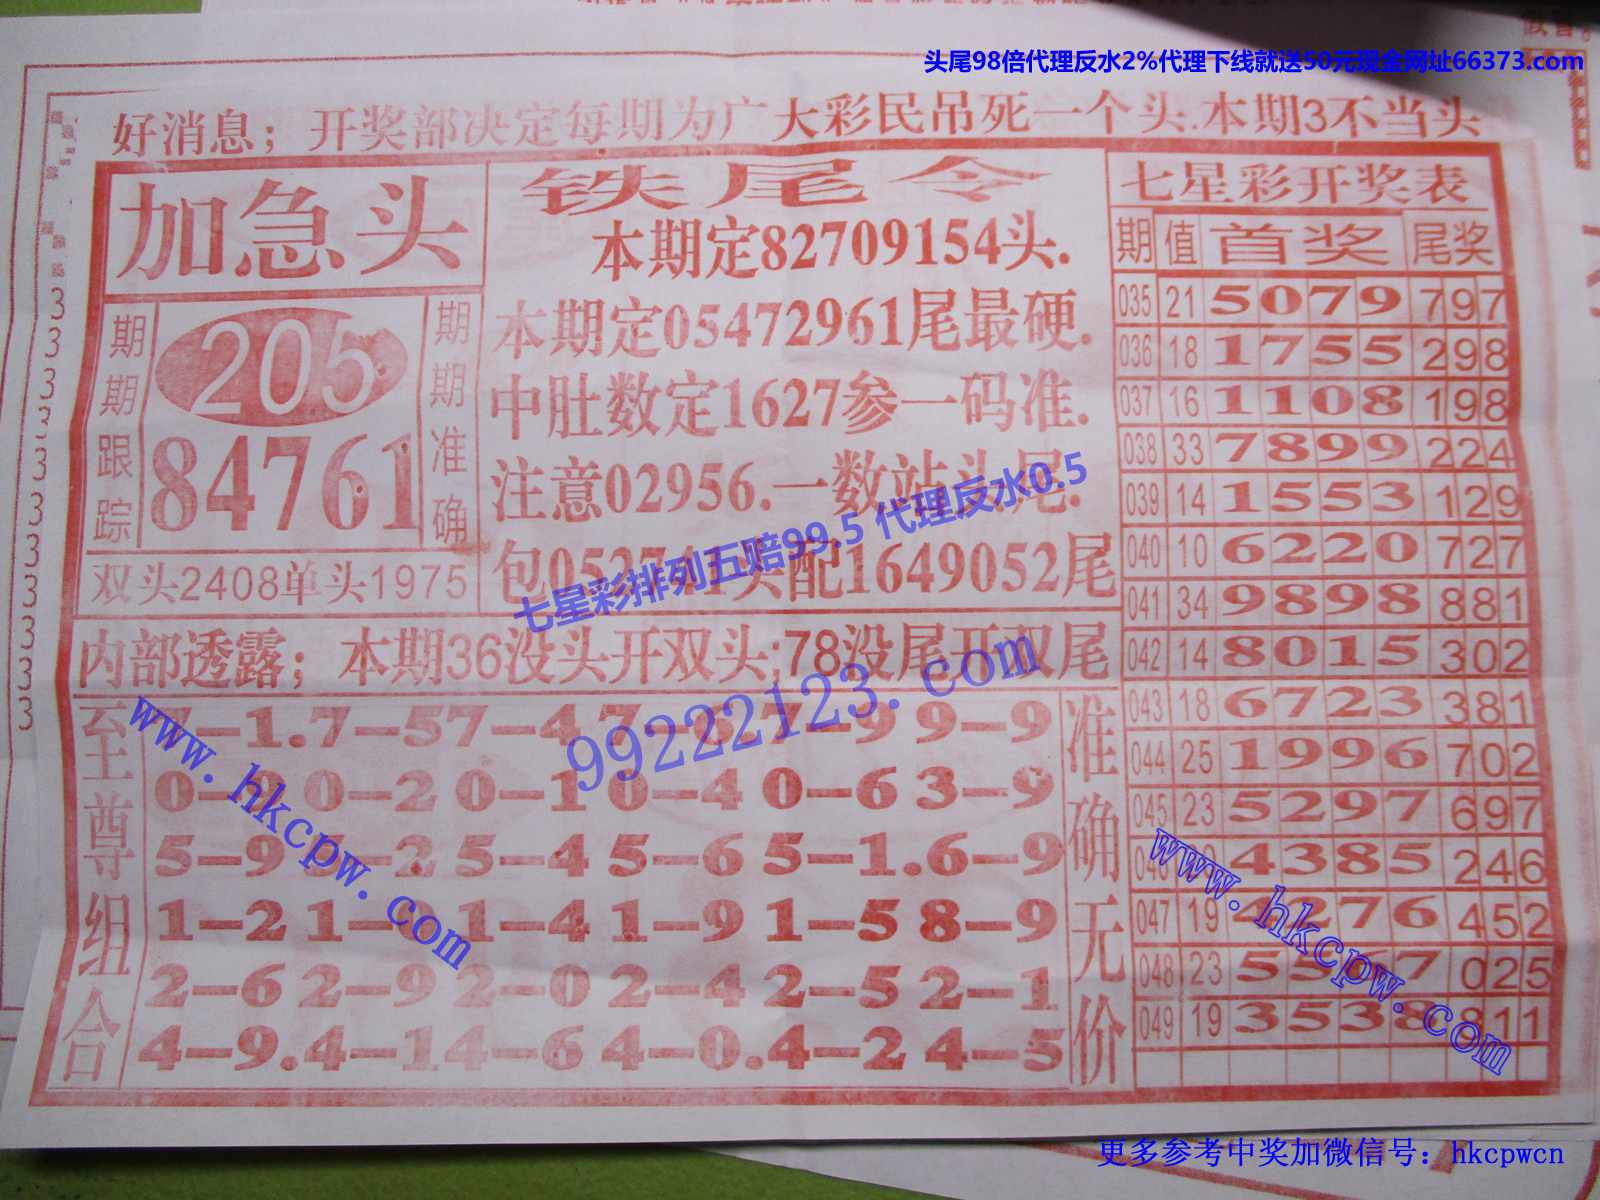 头尾98倍代理反水2%代理下线就送50元现金网址66373.com
好消息；开奖部决定每期为广大彩民吊死一个头.本期3不当头
加急头
期期跟踪
205
84761
期期准确
双头2408单头1975
铁尾令
本期定82709154头.
本期定05472961尾最硬.
中肚数定1627参一码准.
注意02956.一数站头尾.
七星彩排列五赔99.5 代理反水0.5
配1649052尾
内部透露；本期36没头开双头;78没尾开双尾
99222123.com
至尊组合
7-1.7-5 7-4 7-6 7-9 9-9
0-2 0-1 0-4 0-6 3-9
5-9 5-2 5-4 5-6 5-1.6-9
1-2 1-4 1-9 1-5 8-9
2-6 2-9 2-0 2-4 2-5 2-1
4-9.4-1 4-6 4-0.4-2 4-5
准确无价
www.hkcpw.com
七星彩开奖表
期 值 首奖 尾奖
035 21 5079 797
036 18 1755 298
037 16 1108 198
038 33 7899 224
039 14 1553 129
040 10 6220 727
041 34 9898 881
042 14 8015 302
043 18 6723 381
044 25 1996 702
045 23 5297 697
046 4385 246
047 19 4276 452
048 23 5567 025
049 19 3538 811
www.hkcpw.com
3
3
3
3
3
3
3
3
3
3
更多参考中奖加微信号：hkcpwcn